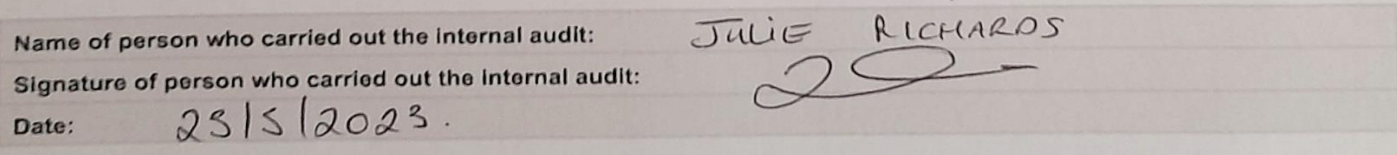 Name of person who carried out the internal audit: JULIE RICHARDS
Signature of person who carried out the internal audit:
Date: 25/5/2023.